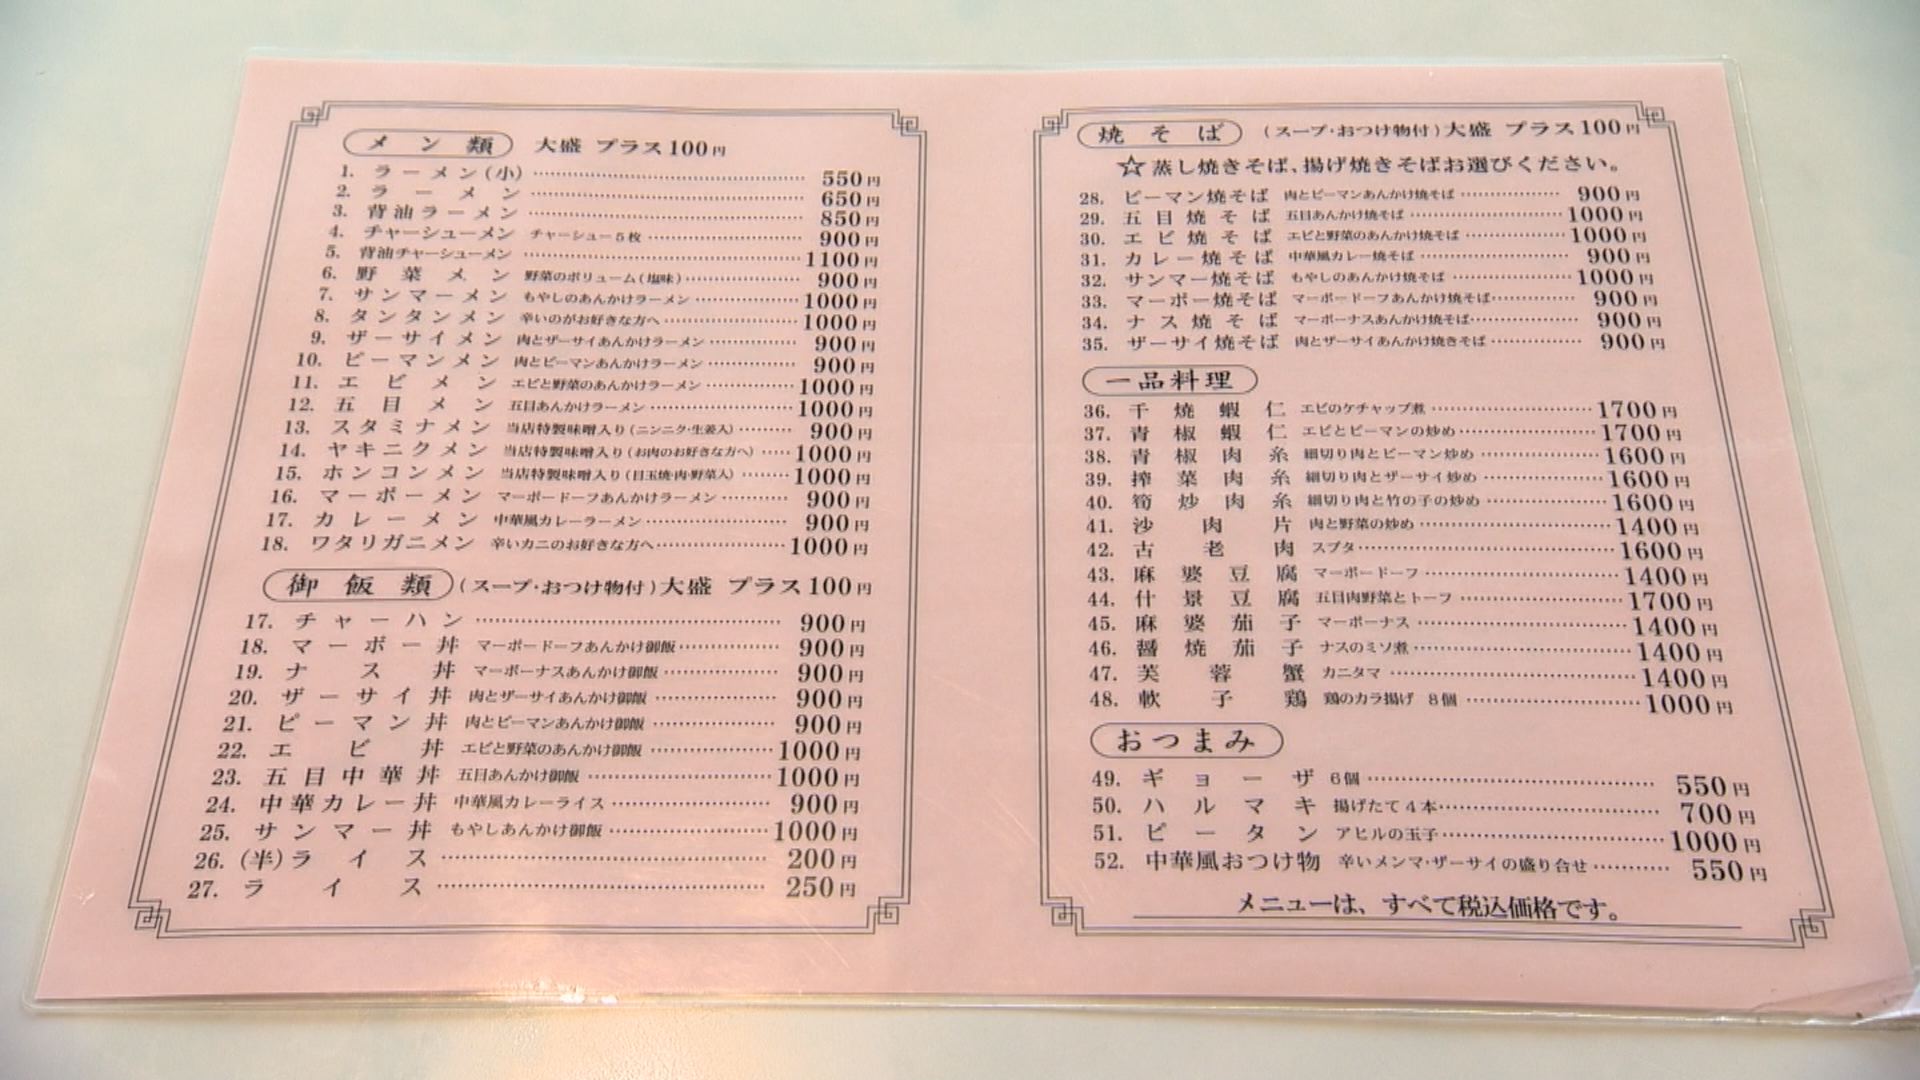 メン類 大盛 プラス100円
1. ラーメン(小) 550円
2. ラーメン 650円
3. 背油ラーメン 850円
4. チャーシューメン チャーシュー5枚 900円
5. 背油チャーシューメン 1100円
6. 野菜メン 野菜のボリューム(塩味) 900円
7. サンマーメン もやしのあんかけラーメン 1000円
8. タンタンメン 辛いのがお好きな方へ 1000円
9. ザーサイメン 肉とザーサイあんかけラーメン 900円
10. ピーマンメン 肉とピーマンあんかけラーメン 900円
11. エビメン エビと野菜のあんかけラーメン 1000円
12. 五目メン 五目あんかけラーメン 1000円
13. スタミナメン 当店特製味噌入り(ニンニク・生姜入) 900円
14. ヤキニクメン 当店特製味噌入り(お肉のお好きな方へ) 1000円
15. ホンコンメン 当店特製味噌入り(目玉焼・肉・野菜入) 1000円
16. マーボーメン マーボードーフあんかけラーメン 900円
17. カレーメン 中華風カレーラーメン 900円
18. ワタリガニメン 辛いカニのお好きな方へ 1000円
御飯類 (スープ・おつけ物付)大盛 プラス100円
17. チャーハン 900円
18. マーボー丼 マーボードーフあんかけ御飯 900円
19. ナス丼 マーボーナスあんかけ御飯 900円
20. ザーサイ丼 肉とザーサイあんかけ御飯 900円
21. ピーマン丼 肉とピーマンあんかけ御飯 900円
22. エビ丼 エビと野菜のあんかけ御飯 1000円
23. 五目中華丼 五目あんかけ御飯 1000円
24. 中華カレー丼 中華風カレーライス 900円
25. サンマー丼 もやしあんかけ御飯 1000円
26. (半)ライス 200円
27. ライス 250円
焼そば (スープ・おつけ物付)大盛 プラス100円
☆蒸し焼きそば、揚げ焼きそばお選びください。
28. ピーマン焼そば 肉とピーマンあんかけ焼そば 900円
29. 五目焼そば 五目あんかけ焼そば 1000円
30. エビ焼そば エビと野菜のあんかけ焼そば 1000円
31. カレー焼そば 中華風カレー焼そば 900円
32. サンマー焼そば もやしのあんかけ焼そば 1000円
33. マーボー焼そば マーボードーフあんかけ焼そば 900円
34. ナス焼そば マーボーナスあんかけ焼そば 900円
35. ザーサイ焼そば 肉とザーサイあんかけ焼きそば 900円
一品料理
36. 干焼蝦仁 エビのケチャップ煮 1700円
37. 青椒蝦仁 エビとピーマンの炒め 1700円
38. 青椒肉糸 細切り肉とピーマン炒め 1600円
39. 搾菜肉糸 細切り肉とザーサイ炒め 1600円
40. 筍炒肉糸 細切り肉と竹の子の炒め 1600円
41. 沙肉片 肉と野菜の炒め 1400円
42. 古老肉 スブタ 1600円
43. 麻婆豆腐 マーボードーフ 1400円
44. 什景豆腐 五目肉野菜とトーフ 1700円
45. 麻婆茄子 マーボーナス 1400円
46. 醤焼茄子 ナスのミソ煮 1400円
47. 芙蓉蟹 カニタマ 1400円
48. 軟子鶏 鶏のカラ揚げ 8個 1000円
おつまみ
49. ギョーザ 6個 550円
50. ハルマキ 揚げたて4本 700円
51. ピータン アヒルの玉子 1000円
52. 中華風おつけ物 辛いメンマ・ザーサイの盛り合せ 550円
メニューは、すべて税込価格です。